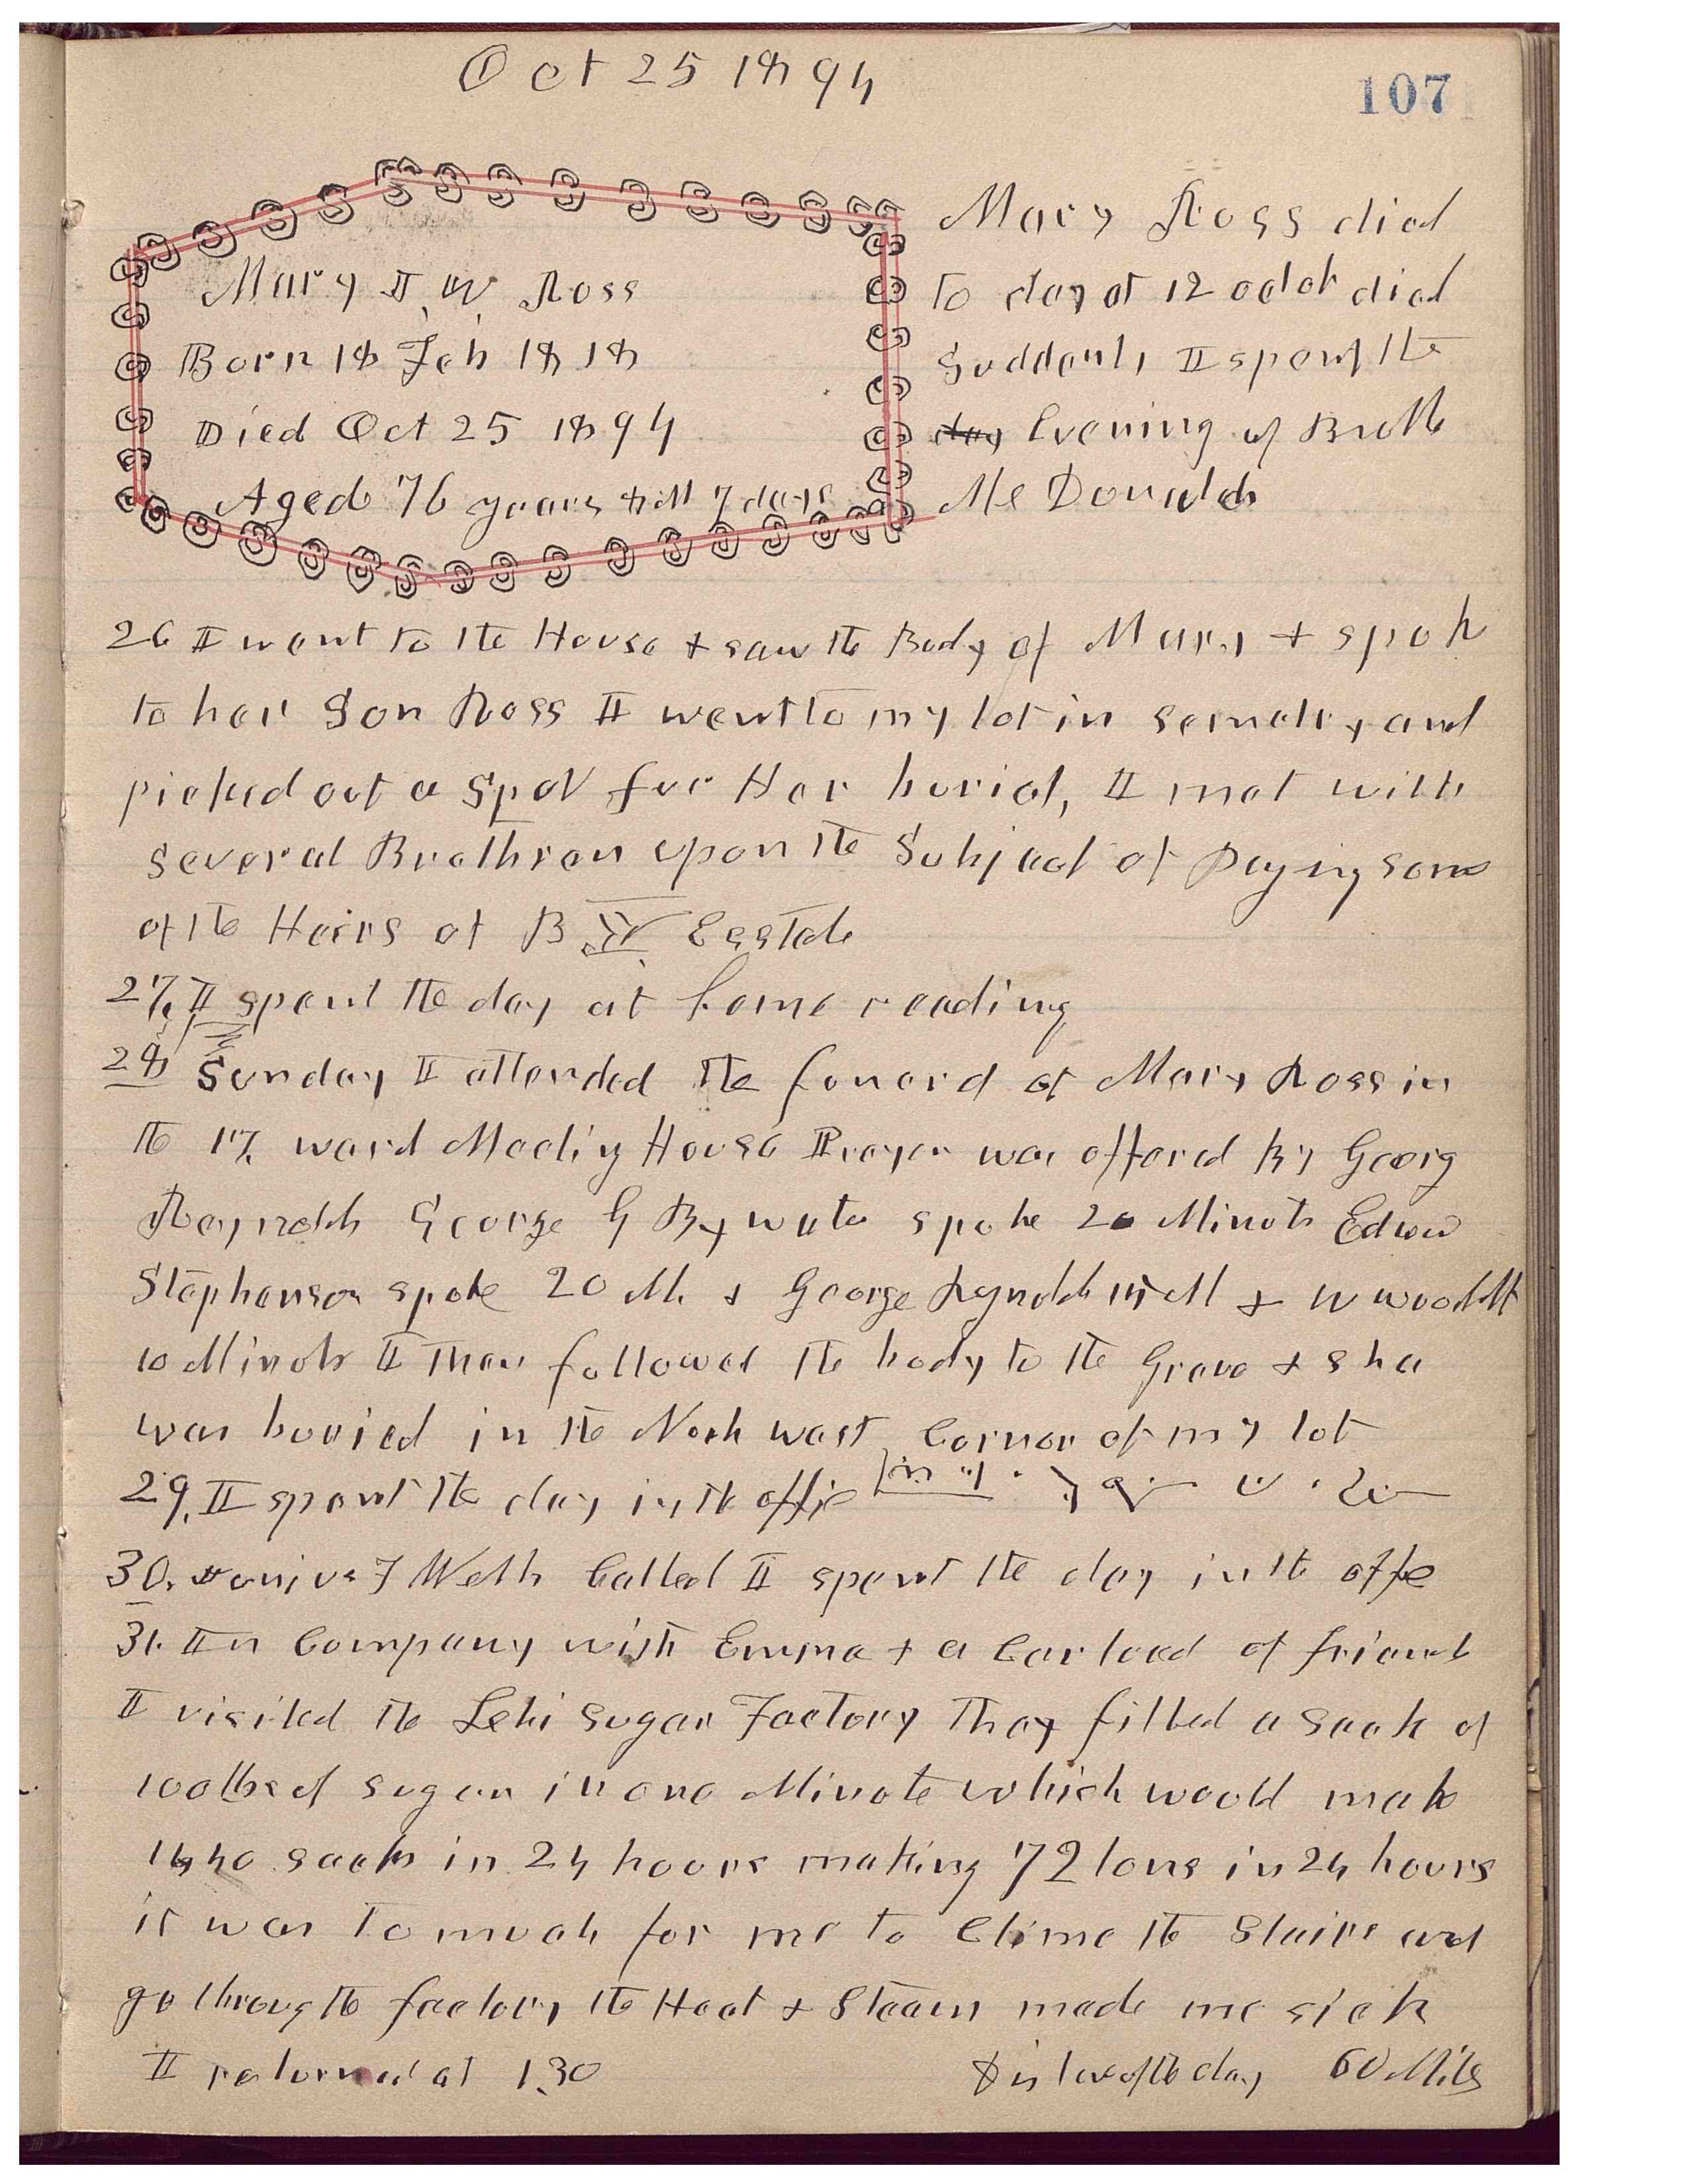 Oct 25 1894
107
Mary I, W, Ross
Born 18 Feb 1818
Died Oct 25 1894
Aged 76 years 8 M 7 days
Mary Ross died
to day at 12 oclok died
Suddenly I spent the
day Evening at Broth
McDonalds
26 I went to the House & saw the Body of Mary & spok
to her Son Ross I went to my lot in semetry and
picked out a spot for Her burial, I met with
several Brethren upon the Subject of Paying some
of the Heirs of B Y Esstate
27, I spent the day at home reading
28 Sunday I attended the funeral of Mary Ross in
the 17, ward Meeting House Prayer was offered By Georg
Reynolds George G Bywater spoke 20 Minuts Edwd
Stephenson spoke 20 M. & George Reynolds 15 M & W woodff
10 Minuts I then followed the body to the Grave & she
was buried in the North west Corner of my lot
29, I spent the day in the offic
30. Junius F Wells Called I spent the day in the offe
31. In Company with Emma & a Car load of friends
I visited the Lehi Sugar Factory They filled a sack of
100 lbs of sugar in one Minute which would make
1440 sacks in 24 hours making 72 tons in 24 hours
it was to much for me to Clime the Stairs and
go throug the factory the Heat & Steam made me sick
I returned at 1.30
Distance of the day 60 Miles